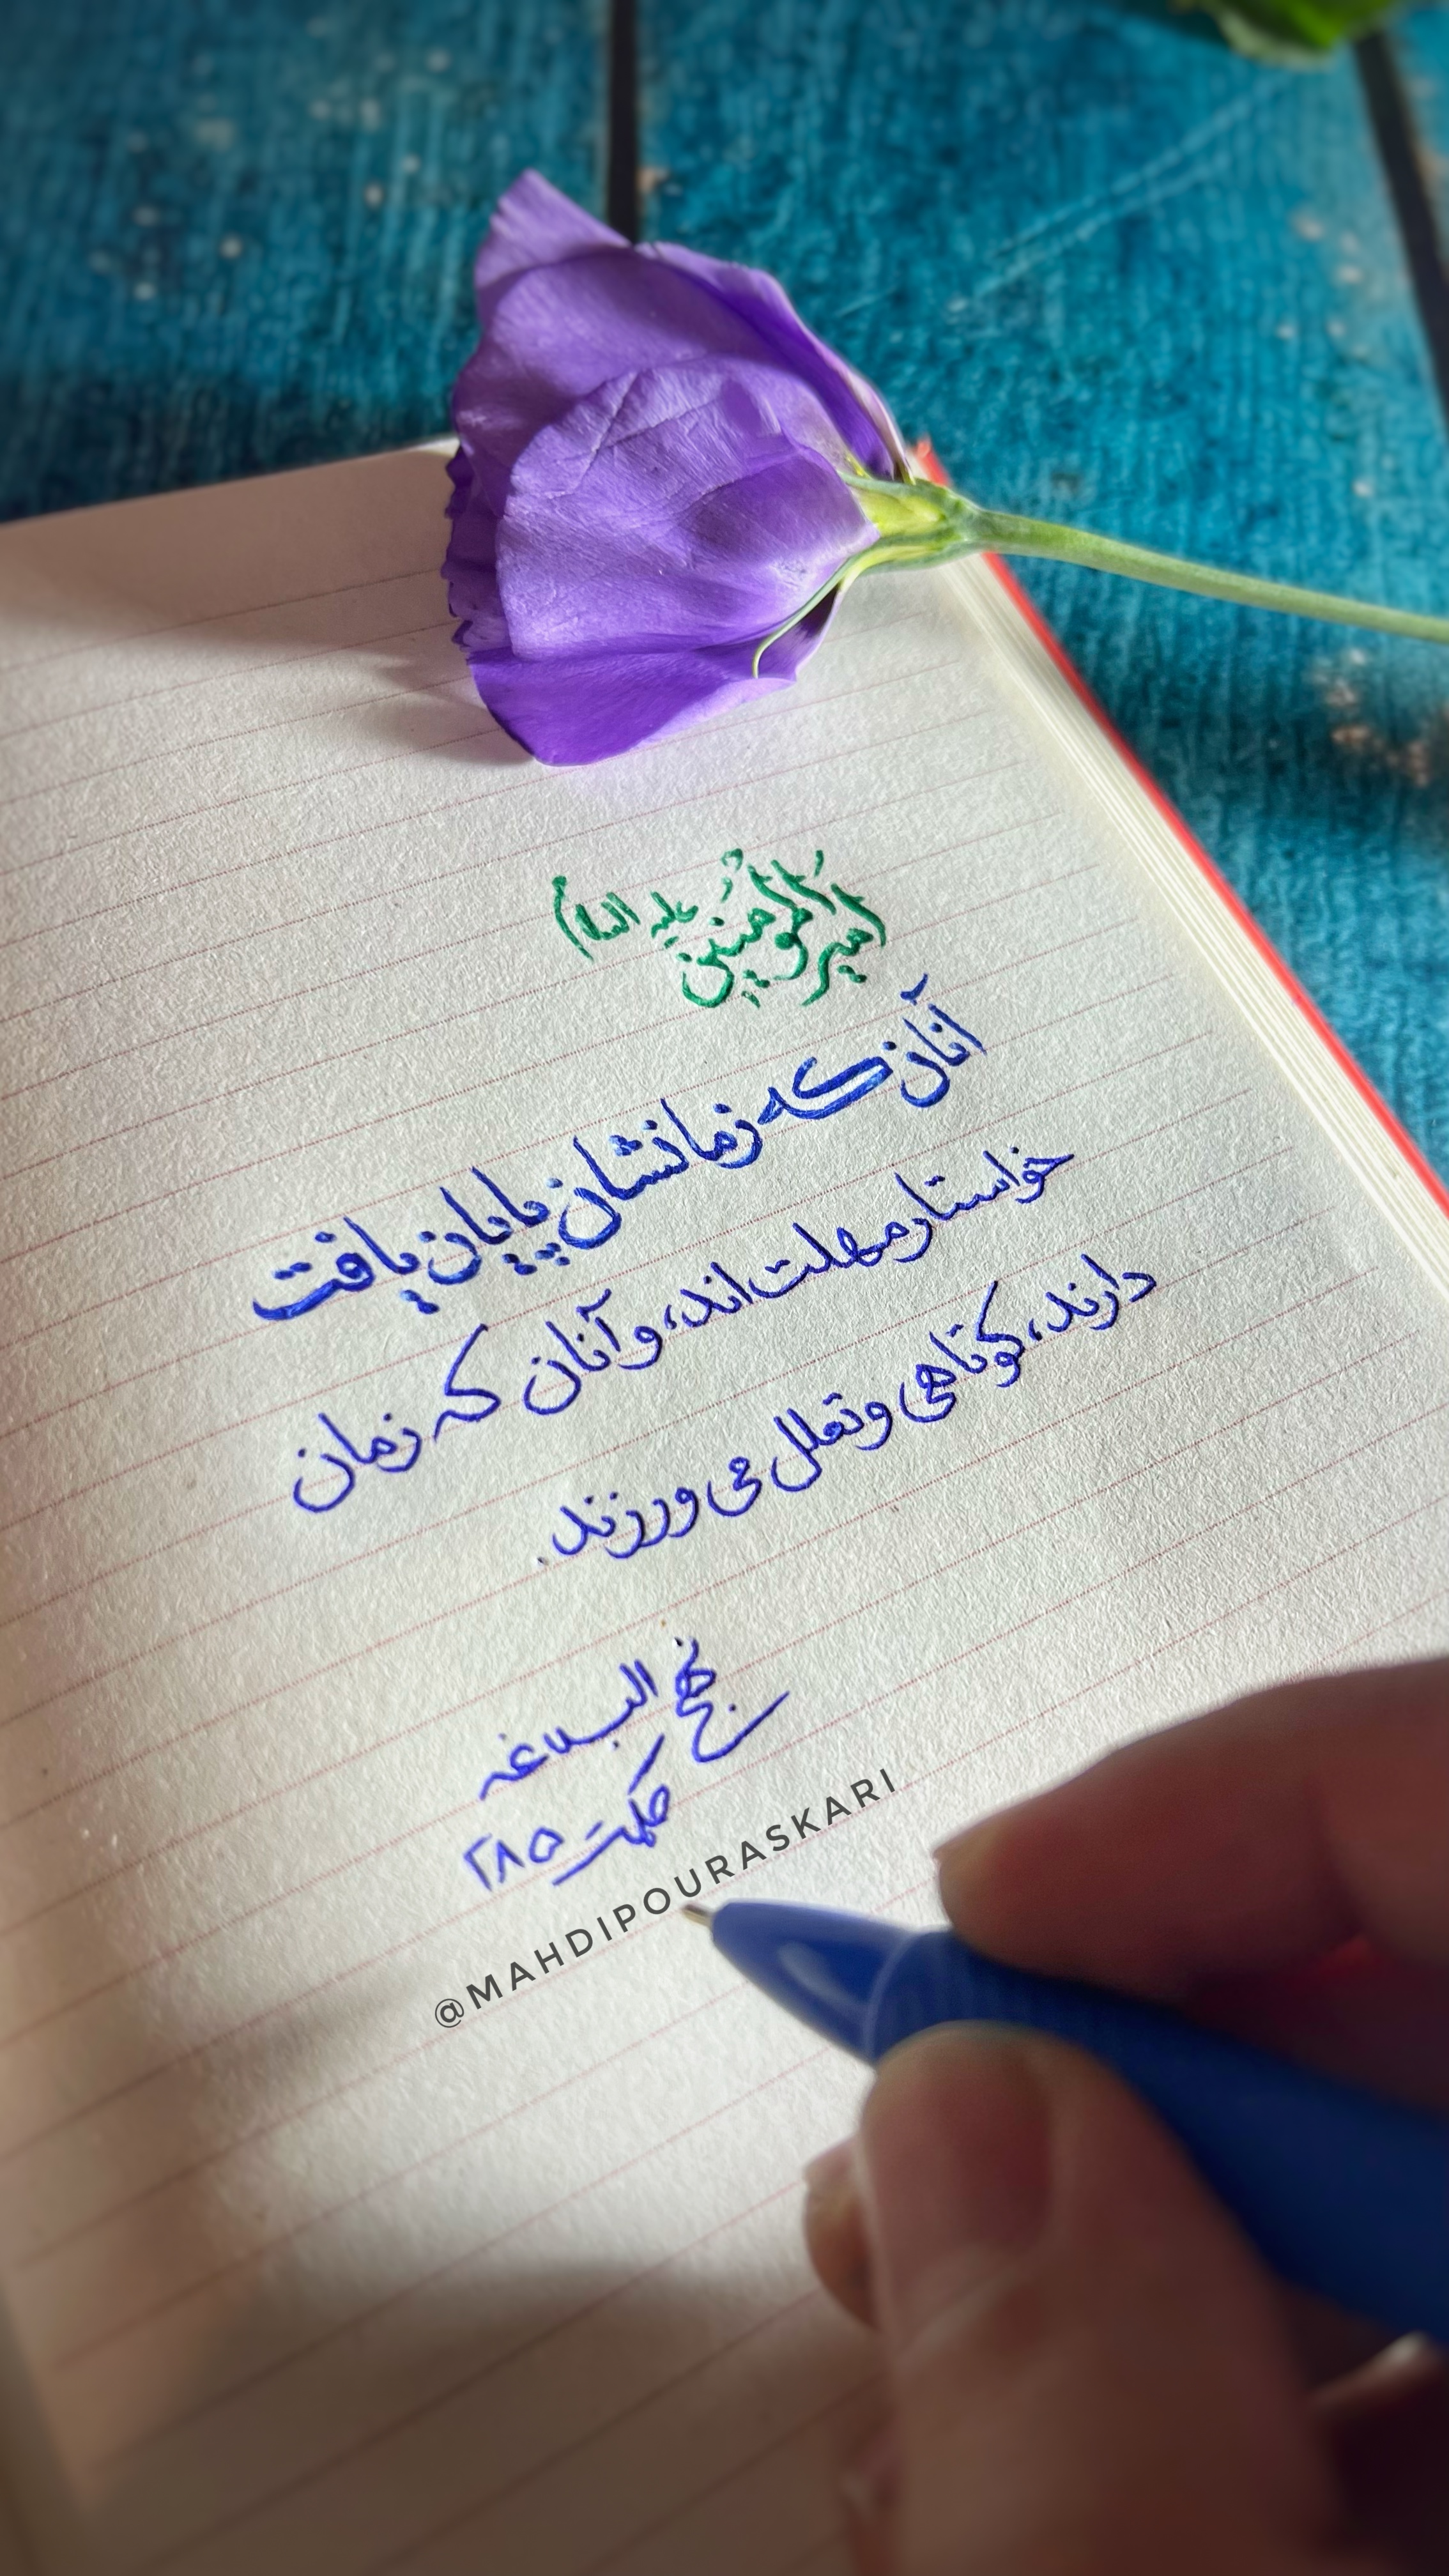 امیرالمؤمنین علیه السلام
آنان که زمانشان پایان یافت
خواستار مهلت اند، و آنان که زمان
دارند، کوتاهی و تعلل می ورزند.
نهج البلاغه
حکمت ۲۸۵
@MAHDIPOURASKARI